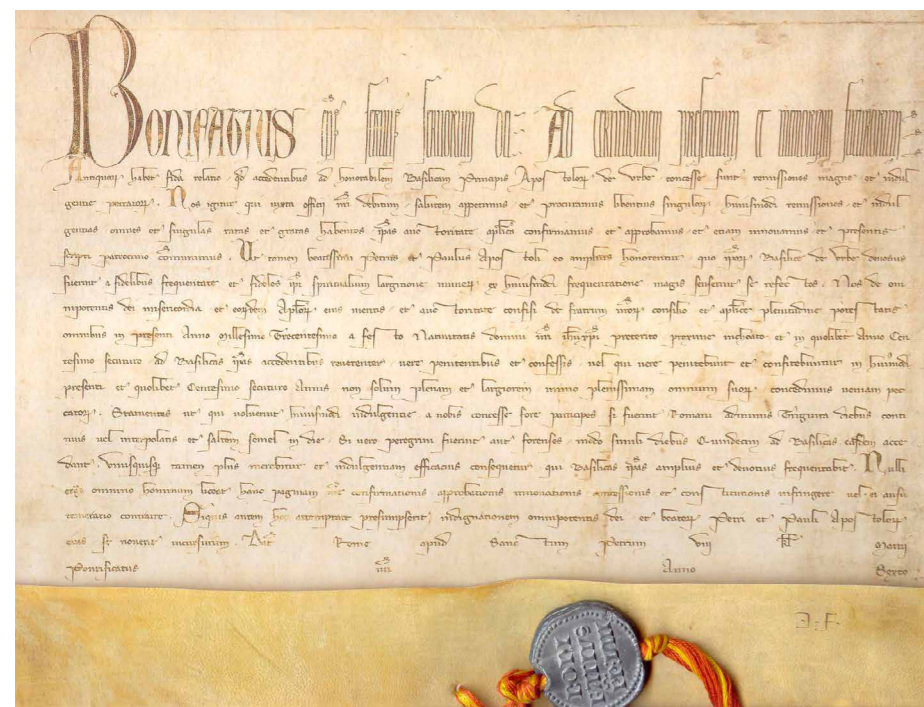 Bonifatius eps servus servorum dei Ad certitudinem presentium et memoriam futurorum
Antiquor habet fida relatio qd accedentibus ad honorabilem Basilicam Principis Apostolor de Urbe concesse sunt remissiones magne et indul
gentie peccator. Nos igitur qui iuxta officii nri debitum salutem appetimus et procuramus libentius singulor huiusmodi remissiones et indul
gentias omnes et singulas ratas et gratas habentes ipas auctoritate aplica confirmamus et approbamus et etiam innovamus et presentis
scripti patrocinio comunimus. Ut tamen beatissimi Petrus et Paulus Apostoli eo amplius honorentur quo ipor Basilice de Urbe devotius
fuerint a fidelibus frequentate et fideles ipi spiritualium largitione muner ex huiusmodi frequentatione magis senserint se refectos Nos de om
nipotentis dei misericordia et eordem Aplor eius meritis et auctoritate confisi de fratrum nror consilio et aplice plenitudine potestatis
omnibus in presenti Anno Millesimo Trecentesimo a festo Nativitatis domini nri ihu xpi preterito proxime inchoato et in quolibet Anno Cen
tesimo secuturo ad Basilicas ipas accedentibus reverenter vere penitentibus et confessis vel qui vere penitebunt et confitebuntur in huiusmodi
presenti et quolibet Centesimo secuturo Annis non solum plenam et largiorem immo plenissimam omnium suor concedimus veniam pec
cator. Statuentes ut qui voluerint huiusmodi indulgentie a nobis concesse fore participes si fuerint Romani ad minus Triginta diebus conti
nuis vel interpolatis et saltem semel in die Si vero peregrini fuerint aut forenses modo simili diebus Quindecim ad Basilicas easdem acce
dant Unusquisq tamen plus merebitur et indulgentiam efficacius consequetur qui Basilicas ipas amplius et devotius frequentabit. Nulli
ergo omnino hominum liceat hanc paginam nre confirmationis approbationis innovationis concessionis et constitutionis infringere vel ei ausu
temerario contraire. Siquis autem hoc attemptare presumpserit indignationem omnipotentis dei et beator Petri et Pauli Apostolor
eius se noverit incursurum. Dat Rome apud Sanctum Petrum viii kl Martii
Pontificatus nri Anno Sexto